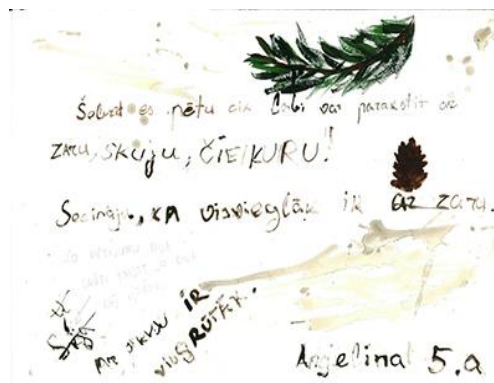 Šobrīd es pētu cik labi var parakstīt ar
zaru, skuju, ČIEKURU!
Secināju, KA visvieglāk ir ar zaru.
AR skuju IR
visGRŪTĀK.
Anjelina 5.a